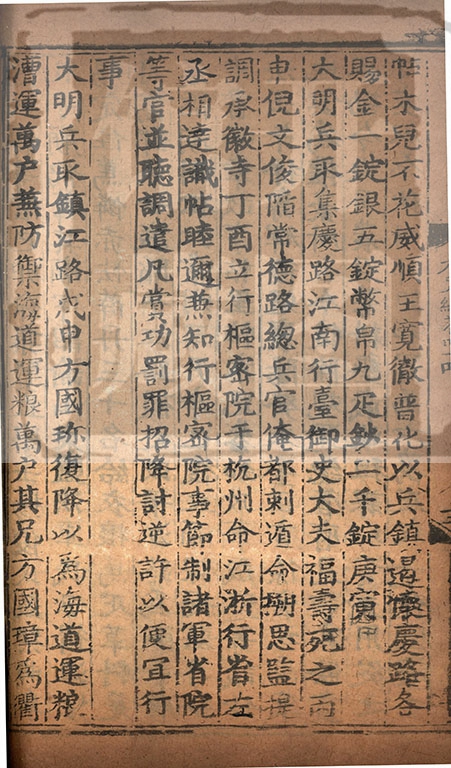 帖木兒不花威順王寛徹普化以兵鎮遏懷慶路各
賜金一錠銀五錠幣帛九疋鈔二千錠庚寅
大明兵取集慶路江南行臺御史大夫福壽死之丙
申倪文俊陷常德路總兵官俺都剌遁命搠思監提
調承徽寺丁酉立行樞密院于杭州命江浙行省左
丞相達識帖睦邇兼知行樞密院事節制諸軍省院
等官並聽調遣凡賞功罰罪招降討逆許以便宜行
事
大明兵取鎮江路戊申方國珍復降以為海道運粮
漕運萬户兼防禦海道運粮萬户其兄方國璋為衢